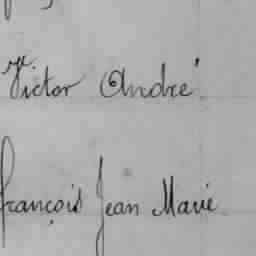 Victor André
François Jean Marie